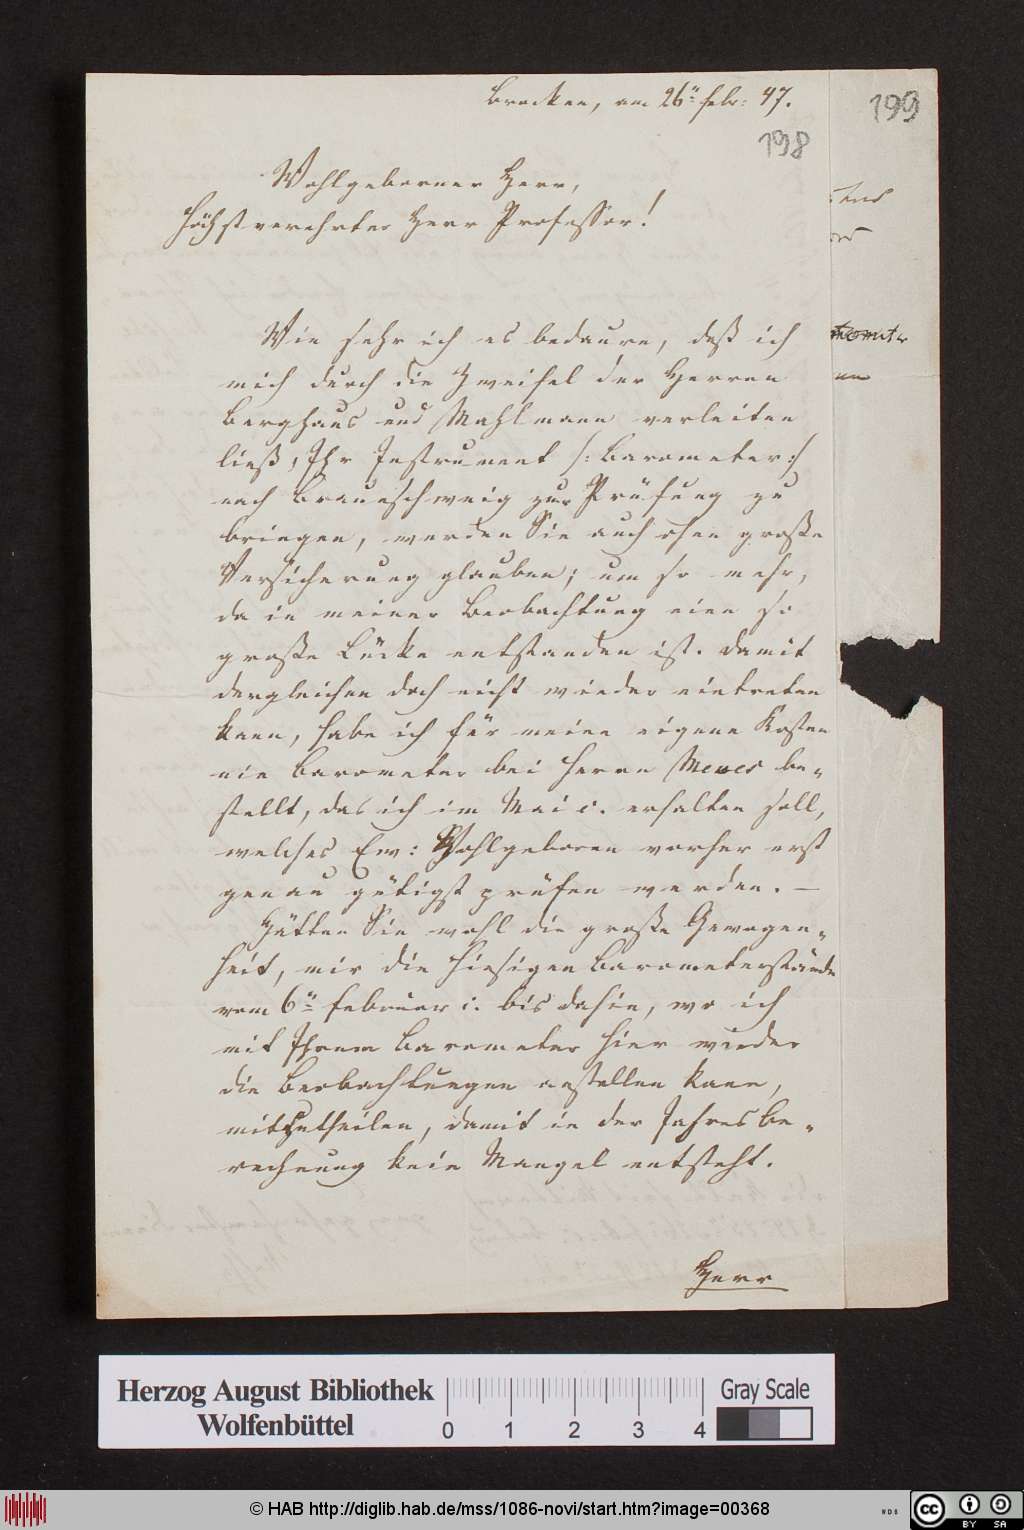 Brocken, am 26n Febr: 47.
199
198
Wohlgeborner Herr,
Höchstverehrter Herr Professor!
Wie sehr ich es bedaure, daß ich
mich durch die Zweifel der Herren
Berghaus und Mahlmann verleiten
ließ, Ihr Instrument /: Barometer :/
nach Braunschweig zur Prüfung zu
bringen, werden Sie auch ohne große
Versicherung glauben; um so mehr,
da in meiner Beobachtung eine so
große Lücke entstanden ist. Damit
dergleichen doch nicht wieder eintreten
kann, habe ich für meine eigene Kosten
ein Barometer bei Herrn be„
stellt, das ich im Mai c. erhalten soll,
welches Ew: Wohlgeboren vorher erst
genau gütigst prüfen werden. —
Hätten Sie wohl die große Gewogen„
heit, mir die hiesigen Barometerstände
vom 6n Februar c. bis dahin, wo ich
mit Ihrem Barometer hier wieder
die Beobachtungen anstellen kann,
mitzutheilen, damit in der Jahresbe„
rechnung kein Mangel entsteht.
Herr
Herzog August Bibliothek
Wolfenbüttel
0 1 2 3 4
Gray Scale
© HAB http://diglib.hab.de/mss/1086-novi/start.htm?image=00368
cc BY SA